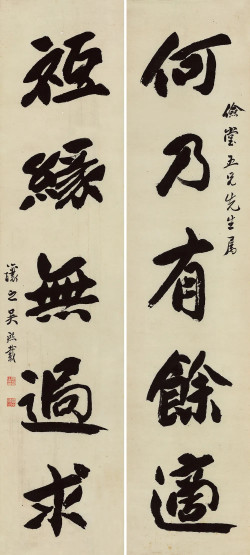 儉堂五兄先生屬
何乃有餘適
祗緣無過求
讓之吳熙載